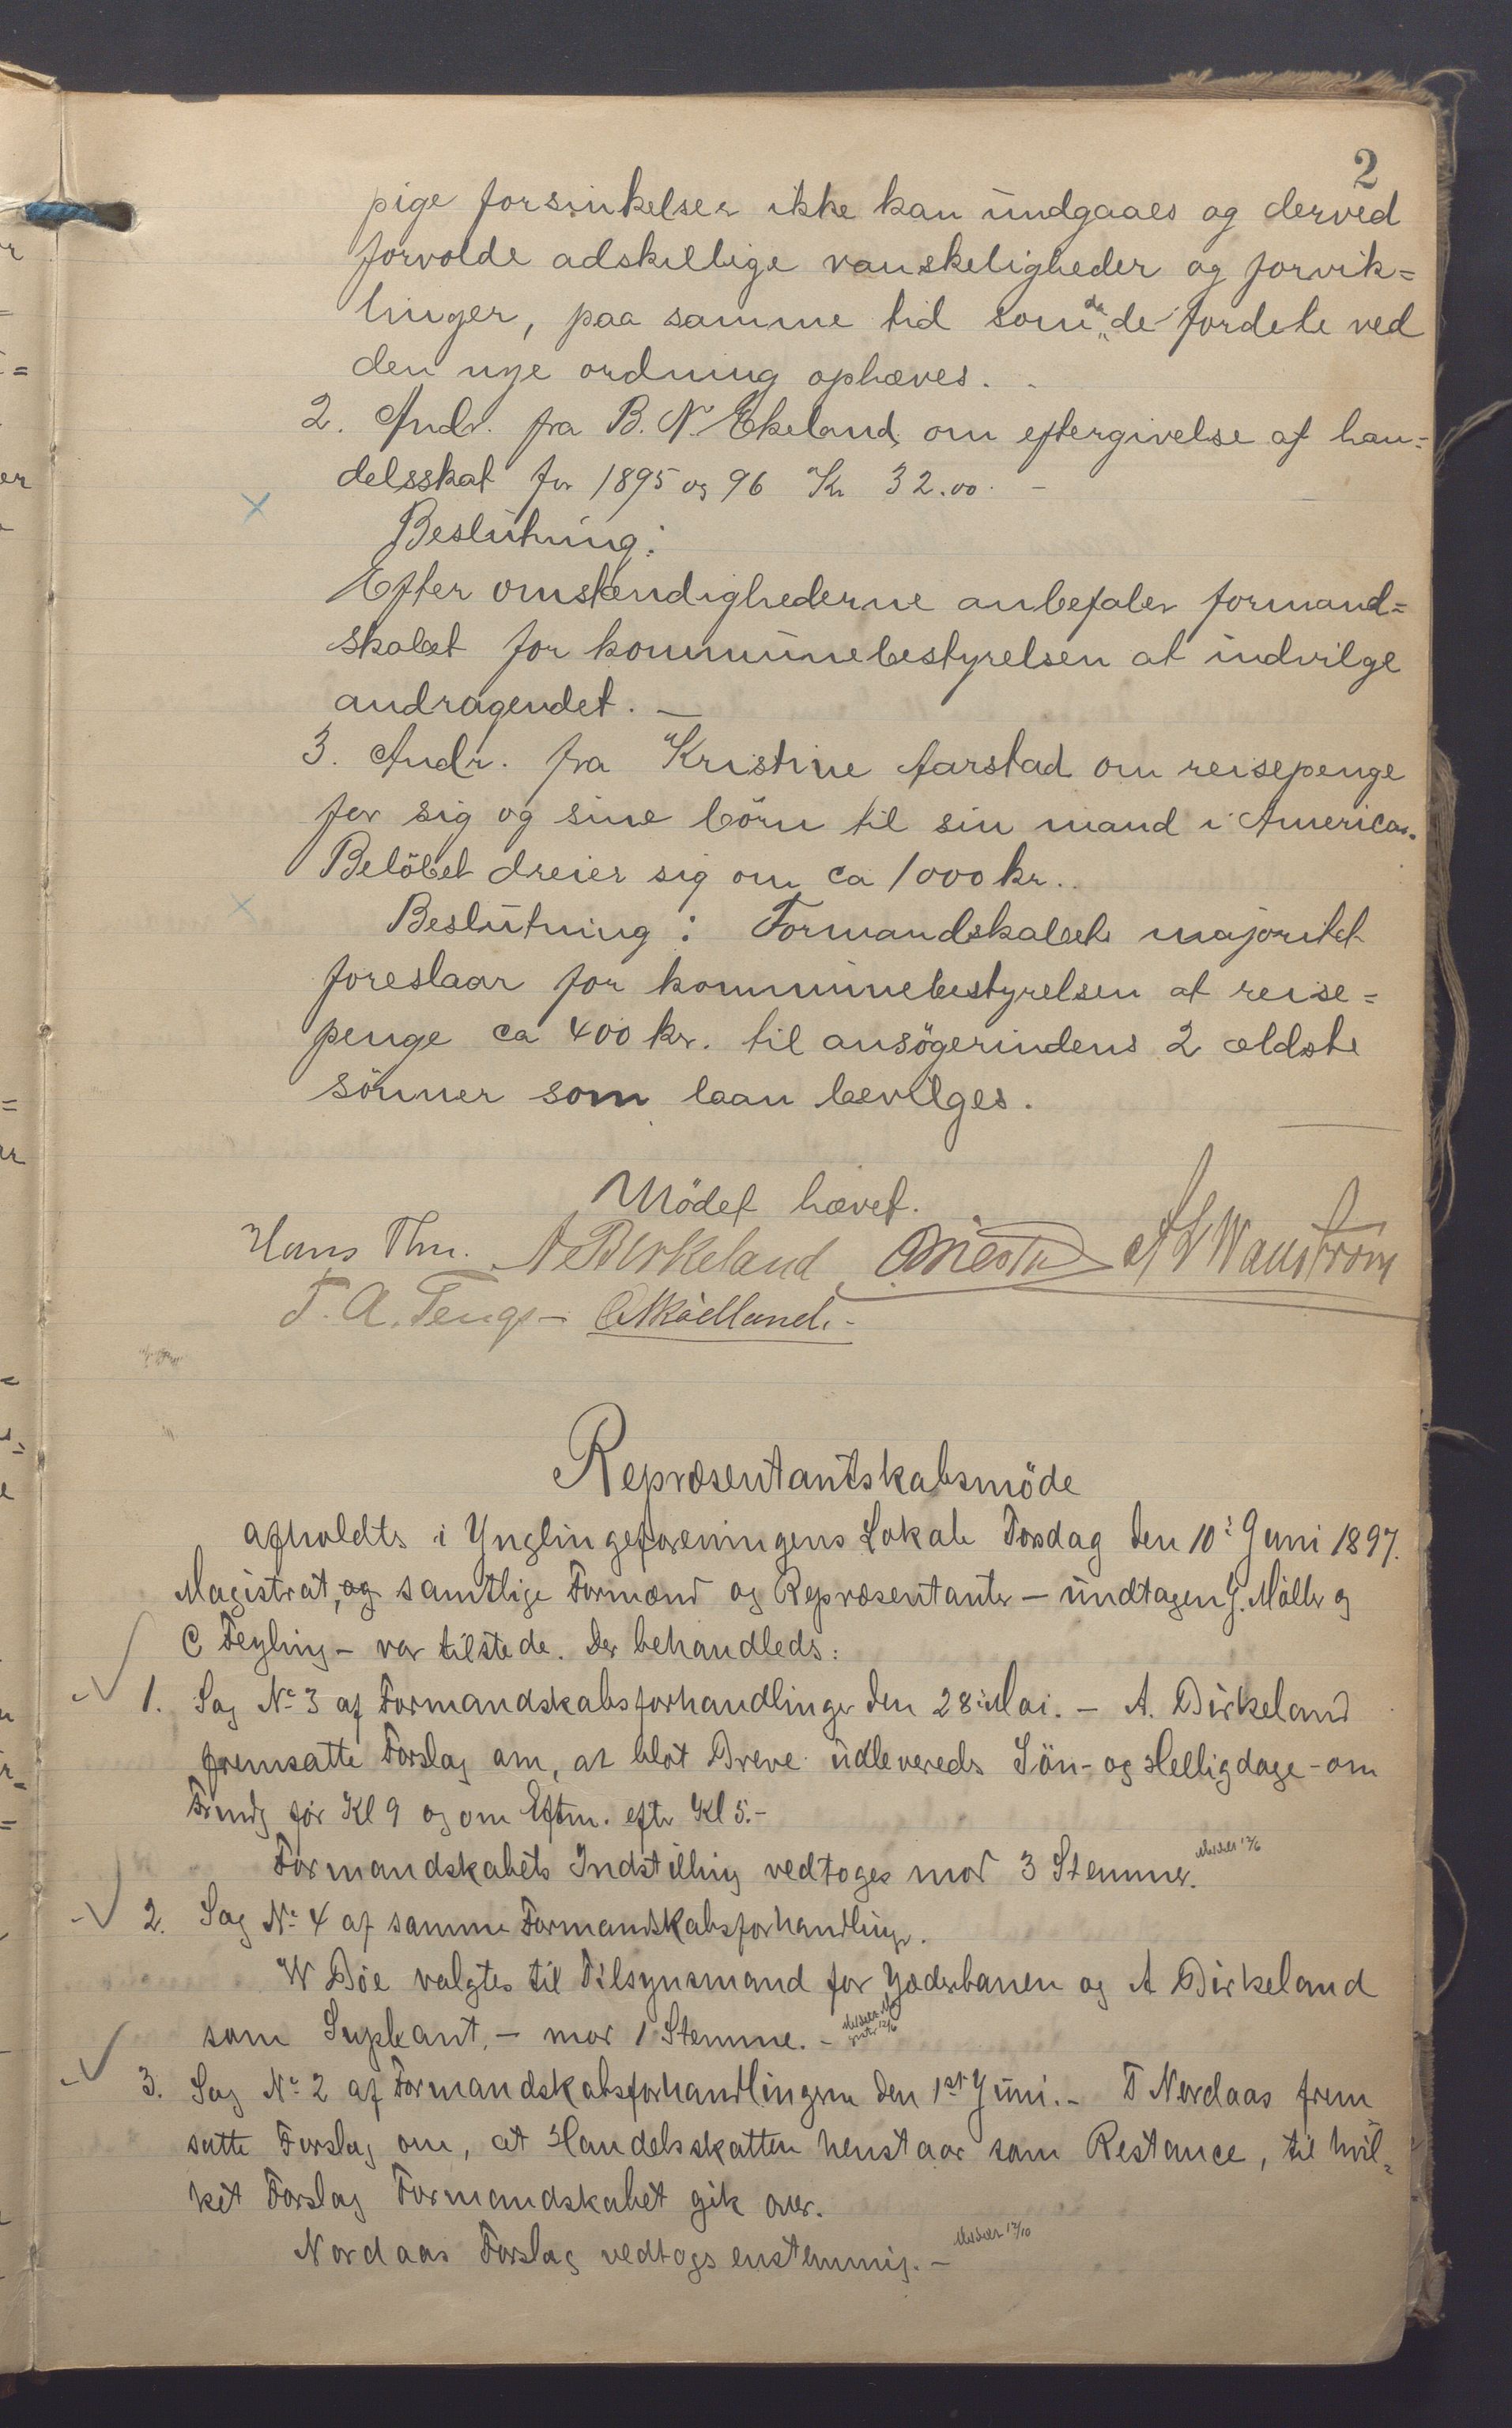 2
pige forsinkelser ikke kan undgaaes og derved
forvolde adskillige vanskeligheder og forvik=
linger, paa samme tid som de fordele ved
den nye ordning ophæves.
2. Andr. fra B. N. Ekeland om eftergivelse af han=
delsskat for 1895 og 96 Kr 32.00. -
Beslutning:
Efter omstændighederne anbefaler formand=
skabet for kommunebestyrelsen at indvilge
andragendet. -
3. Andr. fra Kristine Aarstad om reisepenge
for sig og sine börn til sin mand i America.
Belöbet dreier sig om ca 1000 kr.
Beslutning: Formandskabets majoritet
foreslaar for kommunebestyrelsen at reise=
penge ca 400 kr. til ansögerindens 2 ældste
sönner som laan bevilges.
Mödet hævet.
Hans Thu. A Birkeland A L Wanström
T. A. Tengs - O Mådland. -
Repræsentantskabsmöde
afholdtes i Ynglingeforeningens Lokale Torsdag den 10: Juni 1897.
Magistrat, og samtlige Formænd og Repræsentanter - undtagen J. Møller og
C Feyling - var tilstede. Der behandledes:
1. Sag No 3 af Formandskabsforhandlinger den 28: Mai. - A. Birkeland
fremsatte Forslag om, at blot Breve udleveredes Sön- og Helligdage - om
Frmdg før Kl 9 og om Eftm. efter Kl 5. -
Formandskabets Indstilling vedtoges mod 3 Stemmer. Meddelt 12/6
2. Sag No 4 af samme Formandskabsforhandlinger.
W Bøe valgtes til Tilsynsmand for Jæderbanen og A Birkeland
som Supleant, - mod 1 Stemme. -
3. Sag No 2 af Formandskabsforhandlingerne den 1st Juni. - T Nordaas frem
satte Forslag om, at Handelsskatten henstaar som Restance, til hvil=
ket Forslag Formandskabet gik over.
Nordaas Forslag vedtoges enstemmig. - Meddelt 12/10